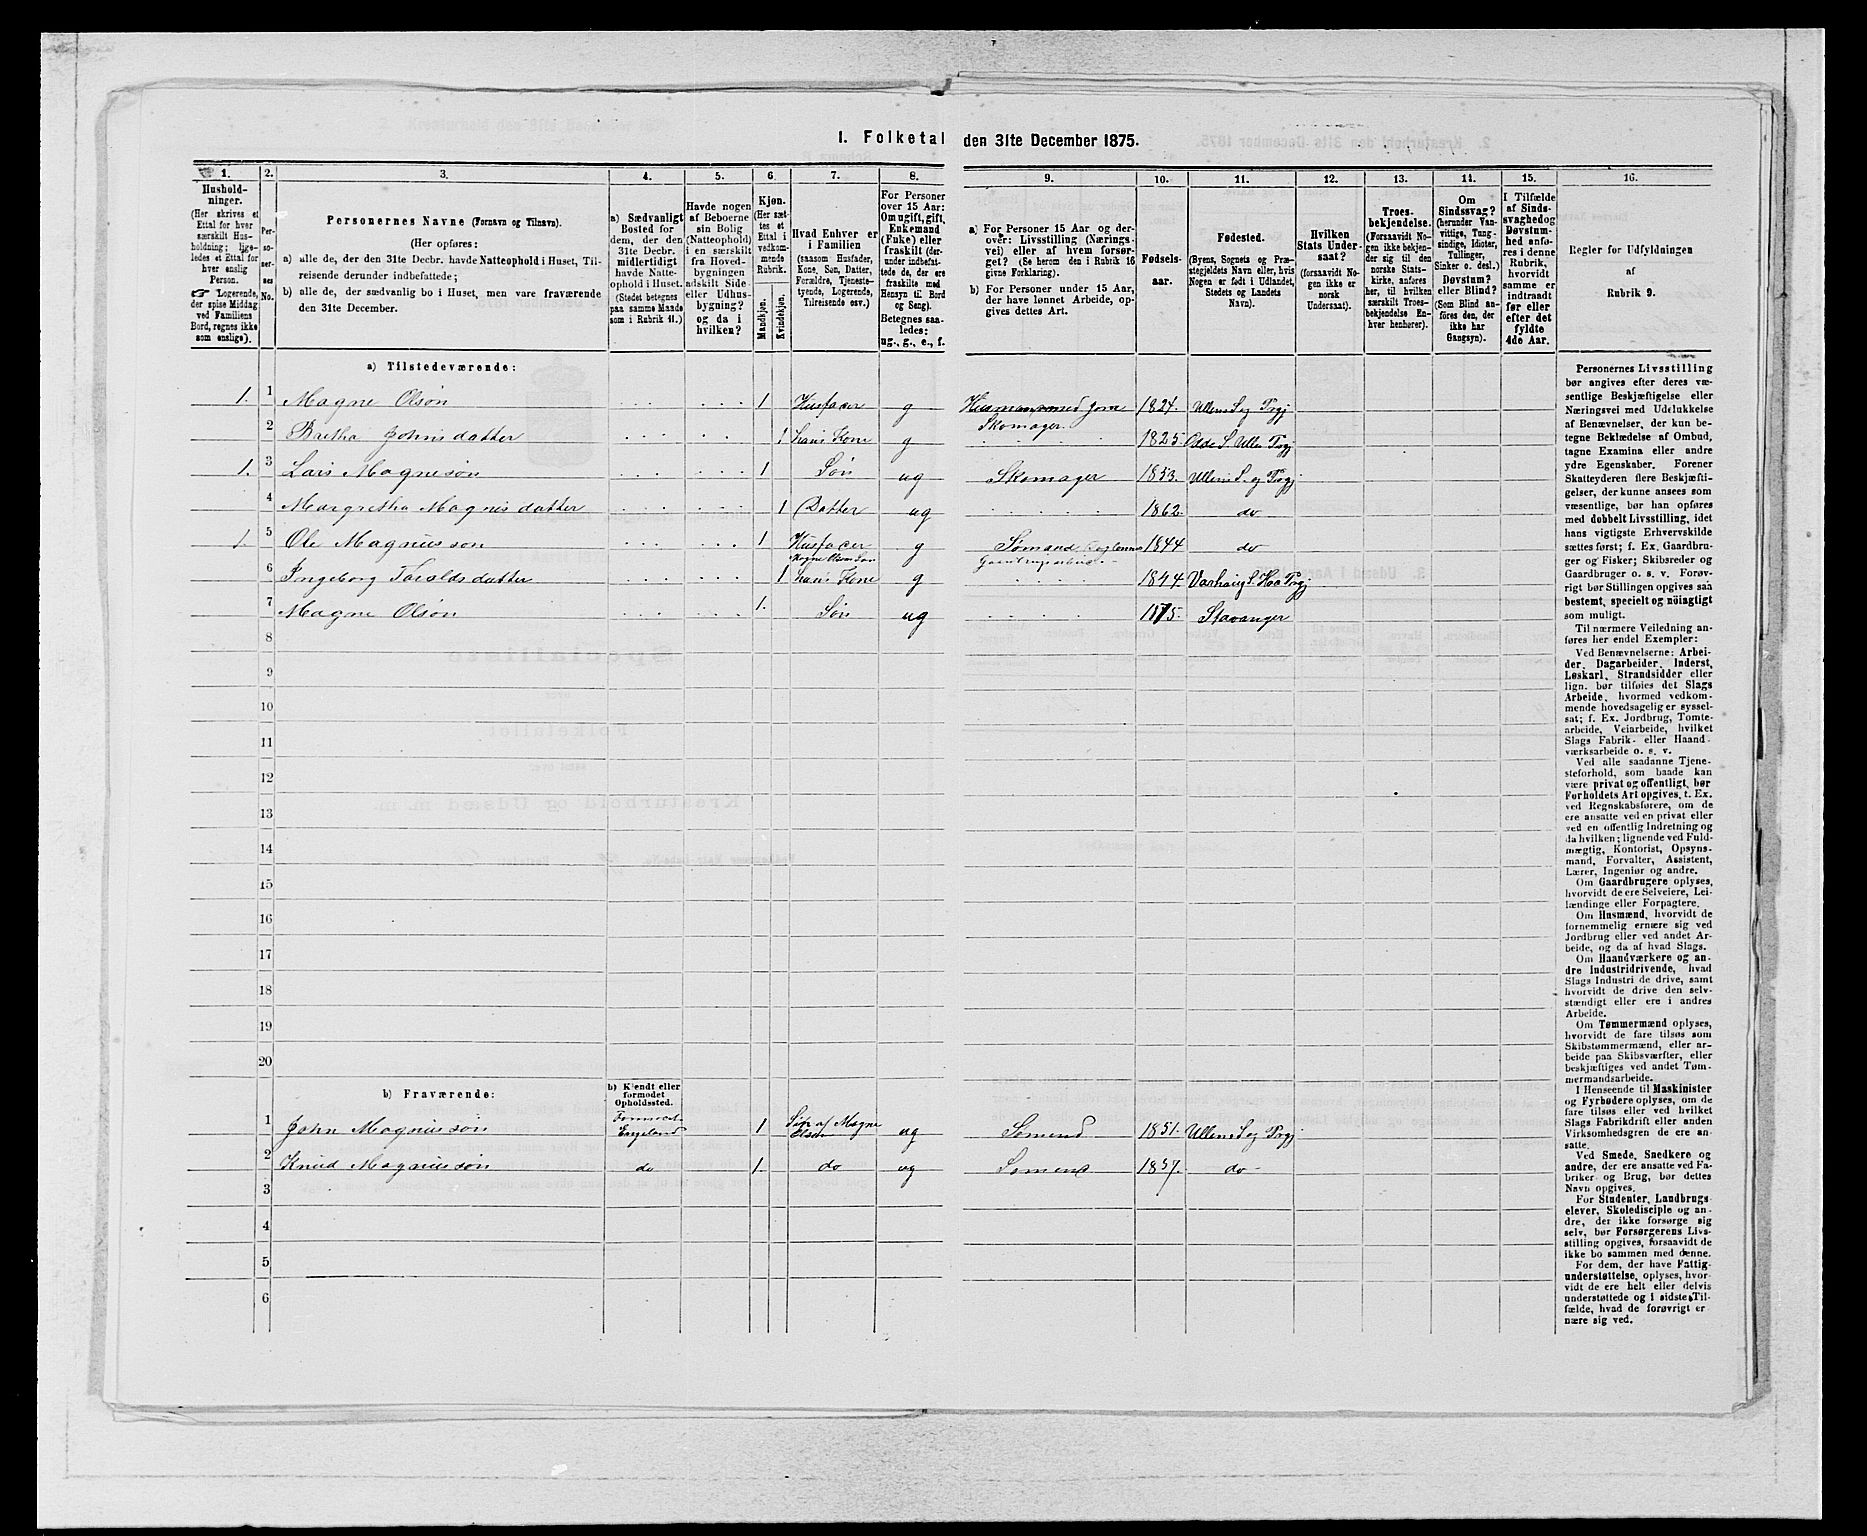 1. Folketal den 31te December 1875.
1. 2. 3. 4. 5. 6. 7. 8. 9. 10. 11. 12. 13. 14. 15. 16.
Hushold-
ninger.
(Her skrives et
Ettal for hver
særskilt Hus-
holdning; lige-
ledes et Ettal for
hver enslig
Person.
Logerende,
der spise Middag
ved Familiens
Bord, regnes ikke
som enslige).
Per-
so-
ner-
nes
No.
Personernes Navne (Fornavn og Tilnavn).
(Her opføres:
a) alle de, der den 31te Decbr. havde Natteophold i Huset, Til-
reisende derunder indbefattede;
b) alle de, der sædvanlig bo i Huset, men vare fraværende
den 31te December.
a) Sædvanligt
Bosted for
dem, der den
31te Decbr.
midlertidigt
havde Natte-
ophold i Huset.
(Stedet betegnes
paa samme Maade
som i Rubrik 11.)
Havde nogen
af Beboerne
sin Bolig
(Natteophold)
i en særskilt
fra Hoved-
bygningen
adskilt Side-
eller Udhus-
bygning?
og da i
hvilken?
Kjøn.
(Her sæt-
tes et
Ettal i
vedkom-
mende
Rubrik.
Mandkjøn.
Kvindekjøn.
Hvad Enhver er
i Familien
(saasom Husfader,
Kone, Søn, Datter,
Forældre, Tjeneste-
tyende, Logerende,
Tilreisende osv.)
For Personer
over 15 Aar:
Om ugift, gift,
Enkemand
(Enke) eller
fraskilt (der-
under indbefat-
tede de, der ere
fraskilte med
Hensyn til Bord
og Seng).
Betegnes saa-
ledes:
ug., g., e., f.
a) For Personer 15 Aar og der-
over: Livsstilling (Nærings-
vei) eller af hvem forsør-
get? (Se herom den i Rubrik 16
givne Forklaring).
b) For Personer under 15 Aar,
der have lønnet Arbeide, op-
gives dettes Art.
Fødsels-
aar.
Fødested.
(Byens, Sognets og Præ-
stegjeldets Navn eller, hvis
Nogen er født i Udlandet,
Stedets og Landets
Navn).
Hvilken
Stats Under-
saat?
(forsaavidt No-
gen ikke er
norsk
Undersaat).
Troes-
bekjendelse.
(Forsaavidt No-
gen ikke bekjen-
der sig til den
norske Stats-
kirke, anføres
her, til hvilken
særskilt Troes-
bekjendelse En-
hver henhører).
Om
Sindssvag?
(herunder Van-
vittige, Tung-
sindige, Idioter,
Tullinger,
Sinker o. desl.)
Døvstum?
eller Blind?
(Som Blind an-
føres den, der
ikke har
Gangsyn).
I Tilfælde
af Sinds-
svaghed og
Døvstum-
hed anfø-
res i denne
Rubrik,
hvorvidt
samme er
indtraadt
før eller
efter det
fyldte
4de Aar.
Regler for Udfyldningen
af
Rubrik 9.
a) Tilstedeværende:
1. 1 Magne Olsøn . . . . . . 1 Husfader g Husmand med Jord 1824. Ullensv og Prgj
Skomager.
2 Bretha Johnsdatter . . . . . . 1 hans Kone g . . . . . 1825 Odde S. Ullen Prgj
1. 3 Lars Magnesøn . . . . . . 1 Søn ug Skomager 1853. Ullens S. og Prgj
4 Margretha Magnisdatter . . . . . . 1 Datter ug . . . . . 1862. do
1. 5 Ole Magnussøn . . . . . . 1 Husfader g Sømand 1844 do
Magne Olsøn Søn
6 Ingeborg Taraldsdatter . . . . . . 1 hans Kone g 1844. Varhaug S. Haa Prgj
7 Magne Olsøn . . . . . . 1. Søn ug . . . . 1875. Stavanger
8
9
10
11
12
13
14
15
16
17
18
19
20
b) Fraværende:
b) Kjendt eller
formodet
Opholdssted.
1 John Magnussøn Formod. England 1 Søn af Magne Olsen ug Sømend 1851. Ullens S. og Prgj
2 Knud Magnussøn do 1. do ug Sømend 1857. do
3
4
5
6
Personernes Livsstilling
bør angives efter deres væ-
sentlige Beskjæftigelse eller
Næringsvei med Udelukkelse
af Benævnelser, der kun be-
tegne Beklædelse af Ombud,
tagne Examina eller andre
ydre Egenskaber. Forener
Skatteyderen flere Beskjæfti-
gelser, der kunne ansees som
væsentlige, bør han opføres
med dobbelt Livsstilling, idet
hans vigtigste Erhvervskilde
sættes først; f. Ex. Gaardbru-
ger og Fisker; Skibsreder og
Gaardbruger o. s. v. Forøv-
rigt bør Stillingen opgives saa
bestemt, specielt og nöiagtigt
som muligt.
Til nærmere Veiledning an-
føres her endel Exempler:
Ved Benævnelserne: Arbei-
der, Dagarbeider, Inderst,
Løskarl, Strandsidder eller
lign. bør tilføies det Slags
Arbeide, hvormed vedkom-
mende hovedsagelig er syssel-
sat; f. Ex. Jordbrug, Tomte-
arbeide, Veiarbeide, hvilket
Slags Fabrik- eller Haand-
værksarbeide o. s. v.
Ved alle saadanne Tjene-
steforhold, som baade kan
være privat og offentligt, bør
Forholdets Art opgives, t. Ex.
ved Regnskabsførere, om de
ere ansatte ved en privat eller
ved en offentlig Indretning og
da hvilken; lignende ved Fuld-
mægtig, Kontorist, Opsyns-
mand, Forvalter, Assistent,
Lærer, Ingeniør og andre.
Om Gaardbrugere oplyses,
hvorvidt de ere Selveiere, Lei-
lændinge eller Forpagtere.
Om Husmænd, hvorvidt de
fornemmelig ernære sig ved
Jordbrug eller ved andet Ar-
beide, og da af hvad Slags.
Om Haandværkere og an-
dre Industridrivende, hvad
Slags Industri de drive, samt
hvorvidt de drive den selv-
stændigt eller ere i andres
Arbeide.
Om Tømmermænd oplyses,
hvorvidt de fare tilsøs som
Skibstømmermænd, eller ar-
beide paa Skibsværfter, eller
beskjæftiges ved andet Tøm-
mermandsarbeide.
I Henseende til Maskinister
og Fyrbødere oplyses, om de
fare tilsøs eller ved hvilket
Slags Fabrikdrift eller anden
Virksomhedsgren de ere an-
satte.
Ved Smede, Snedkere og
andre, der ere ansatte ved Fa-
briker og Brug, bør dettes
Navn opgives.
For Studenter, Landbrugs-
elever, Skoledisciple og an-
dre, der ikke forsørge sig
selv, bør Forsørgerens Livs-
stilling opgives, forsaavidt de
ikke bo sammen med denne.
For dem, der have Fattig-
understøttelse, oplyses, hvor-
vidt de ere helt eller delvis
understøttede og i sidste Til-
fælde, hvad de forøvrigt er-
nære sig ved.